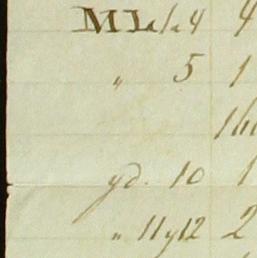 ML 4 4
" 5 1
16
yd. 10 1
" 11 y 12 2